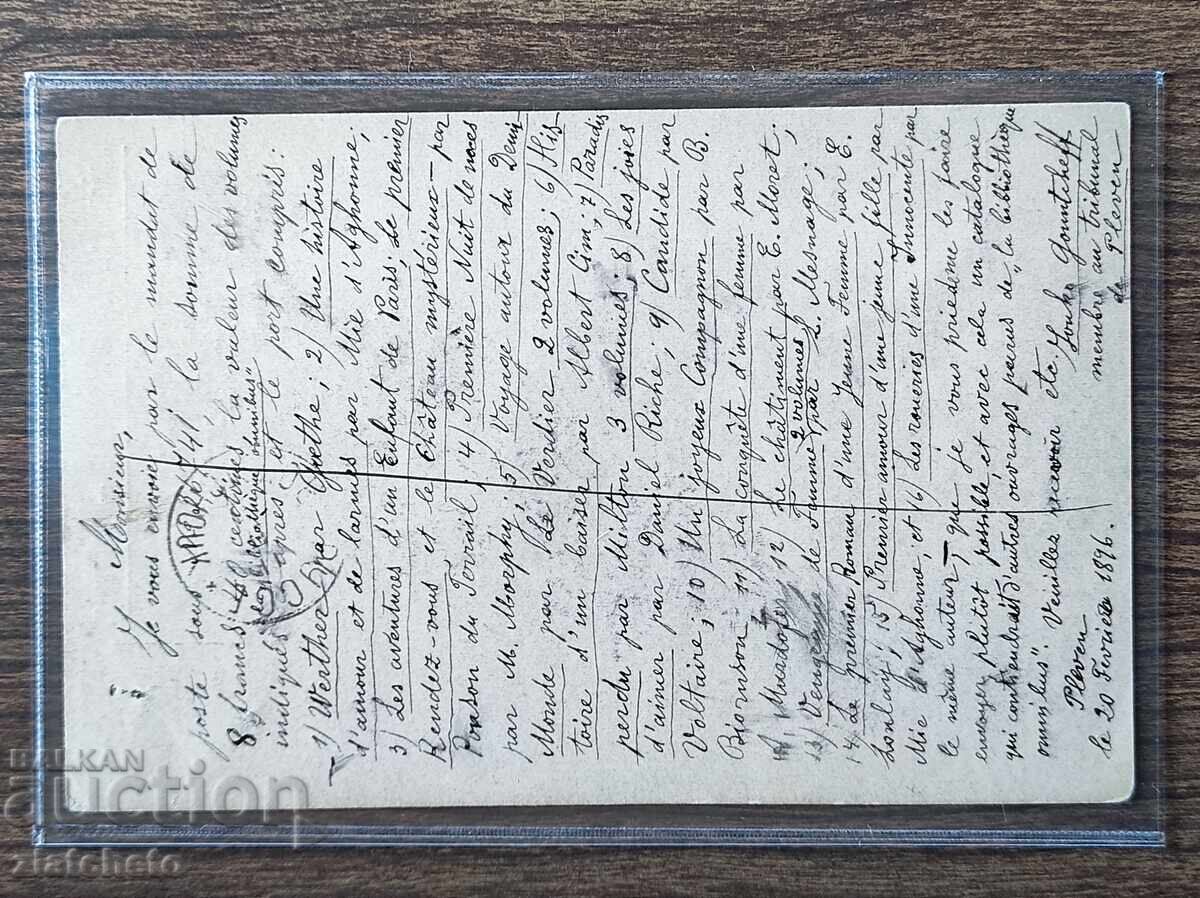 Monsieur,
Je vous envoie par le mandat de
poste sous 141 la somme de
8 francs la valeur des volumes
"Bibliothèque omnibus"
indiqués après et le port compris:
1) Werther par Goethe; 2) Une histoire
d'amour et de larmes par Mie d'Aghonne;
3) Les aventures d'un Enfant de Paris; Le premier
Rendez-vous et le Château mystérieux – par
Ponson du Terrail; 4) Première Nuit de noces
par M. Morphy; 5) Voyage autour du Demi
Monde par Le Verdier 2 volumes; 6) His
toire d'un baiser par Albert Cim; 7) Paradis
perdu par Milton 3 volumes; 8) Les joies
d'aimer par Daniel Riche; 9) Candide par
Voltaire; 10) Un joyeux Compagnon par B.
Biornson; 11) La conquête d'une femme par
12) Le châtiment par E. Moret;
2 volumes
13) Vengeance de Femme par L. Mesnage;
14 Le premier Roman d'une Jeune Femme par E.
15) Premier amour d'une jeune fille par
Mie d'Aghonne; et 16) Les roueries d'une Innocente par
le même auteur, – que je vous prie de me les faire
envoyer plutôt possible et avec cela un catalogue
qui contiendrait d'autres ouvrages parus de "la bibliothèque
omnibus". Veuillez etc. Ionko Gountcheff
membre au tribunal
de Pleven
Pleven
le 20 Fevrier 1896.
BALKAN
auction
zlatcheto